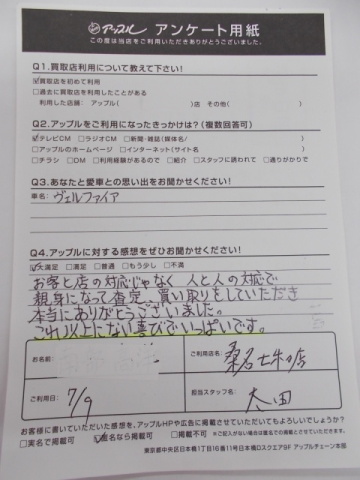 アップル アンケート用紙
この度は当店をご利用いただきありがとうございました。
Q1.買取店利用について教えて下さい!
☑買取店を初めて利用
□過去に買取店を利用したことがある
利用した店舗: アップル( )店 その他( )
Q2.アップルをご利用になったきっかけは?(複数回答可)
☑テレビCM □ラジオCM □新聞・雑誌(媒体名/ )
□アップルのホームページ □インターネット(サイト名 )
□チラシ □DM □利用経験があるので □紹介 □スタッフに誘われて □通りがかりで
Q3.あなたと愛車との思い出をお聞かせください!
車名: ヴェルファイア
Q4.アップルに対する感想をぜひお聞かせください!
☑大満足 □満足 □普通 □もう少し □不満
お客と店の対応じゃなく 人と人の対応で
親身になって査定、買い取りをしていただき
本当にありがとうございました。
これ以上にない喜びでいっぱいです。
お名前
ご利用店名: 桑名七和店
ご利用日: 7/9
担当スタッフ名: 太田
お客様に書いていただいた感想を、アップルHPや広告に掲載させていただいてもよろしいでしょうか?
□実名で掲載可 ☑匿名なら掲載可 □掲載不可 ※ご記入がない場合は匿名での掲載とさせていただきます。
東京都中央区日本橋1丁目16番11号日本橋Dスクエア9F アップルチェーン本部